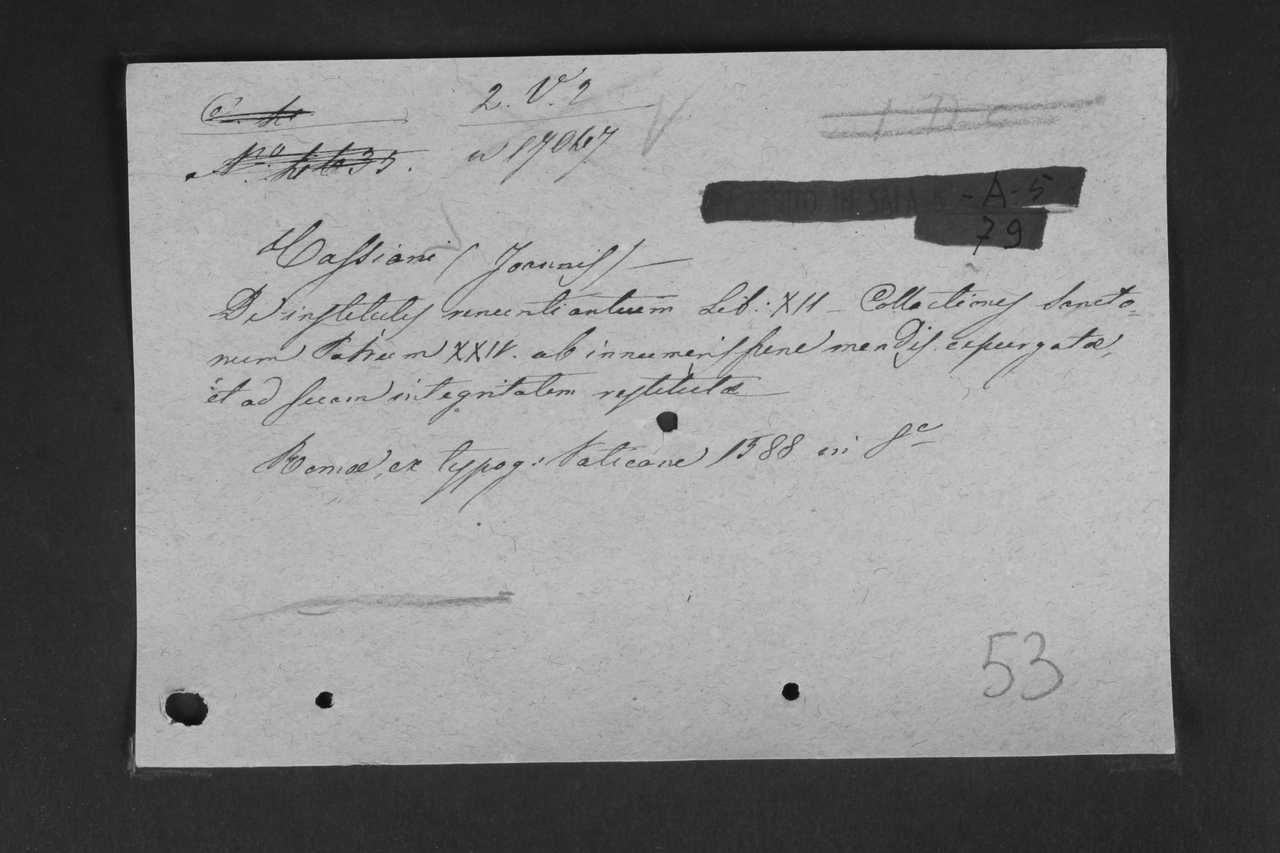 2. V. 2
Nº 4435.
n 17047
A-5
79
Cassiani (Joannis) —
De institutis renuntiantium Lib: XII — Collactiones Sancto=
rum Patrum XXIV. ab innumeris pene mendis expurgatæ,
et ad suam integritatem restitutæ —
Romæ, ex typog: Vaticana 1588 in 8º
53